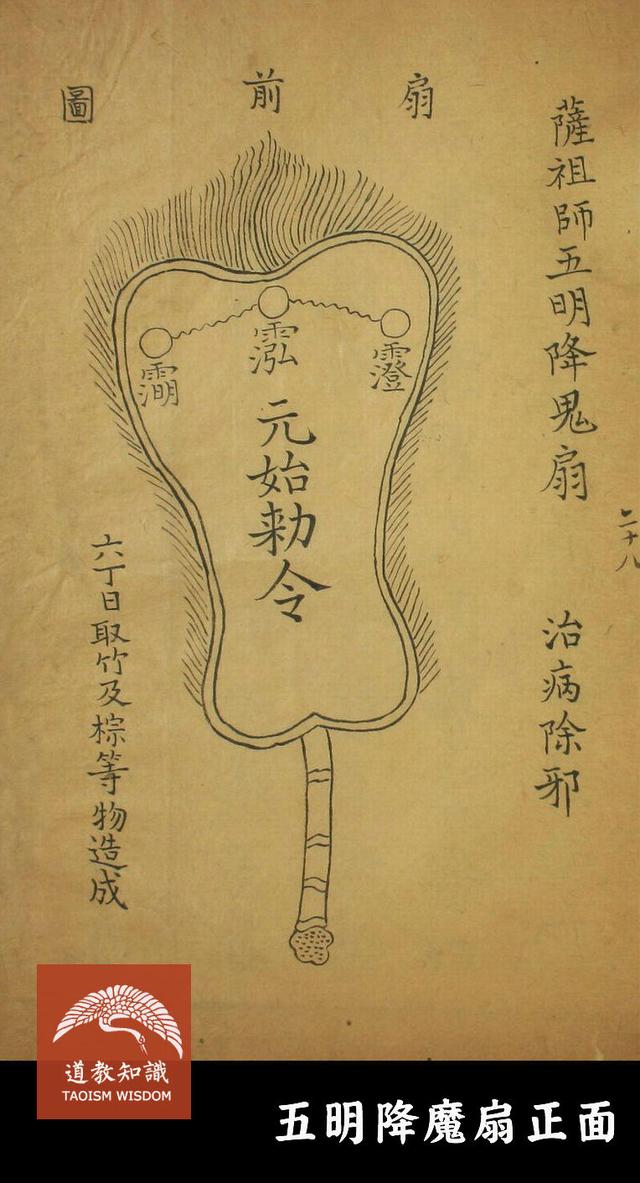 薩祖師五明降鬼扇 治病除邪
二十八
扇前圖
靈
泓
元始勅令
六丁日取竹及棕等物造成
道教知識
TAOISM WISDOM
五明降魔扇正面